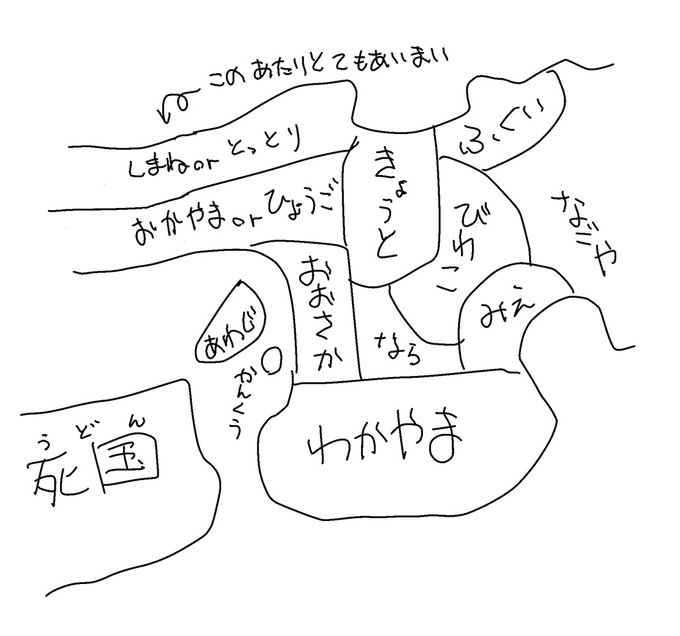 このあたりとてもあいまい
しまねorとっとり
おかやまorひょうご
きょうと
ふくい
びわこ
なごや
おおさか
なら
みえ
あわじ
かんくう
わかやま
うどん
死国